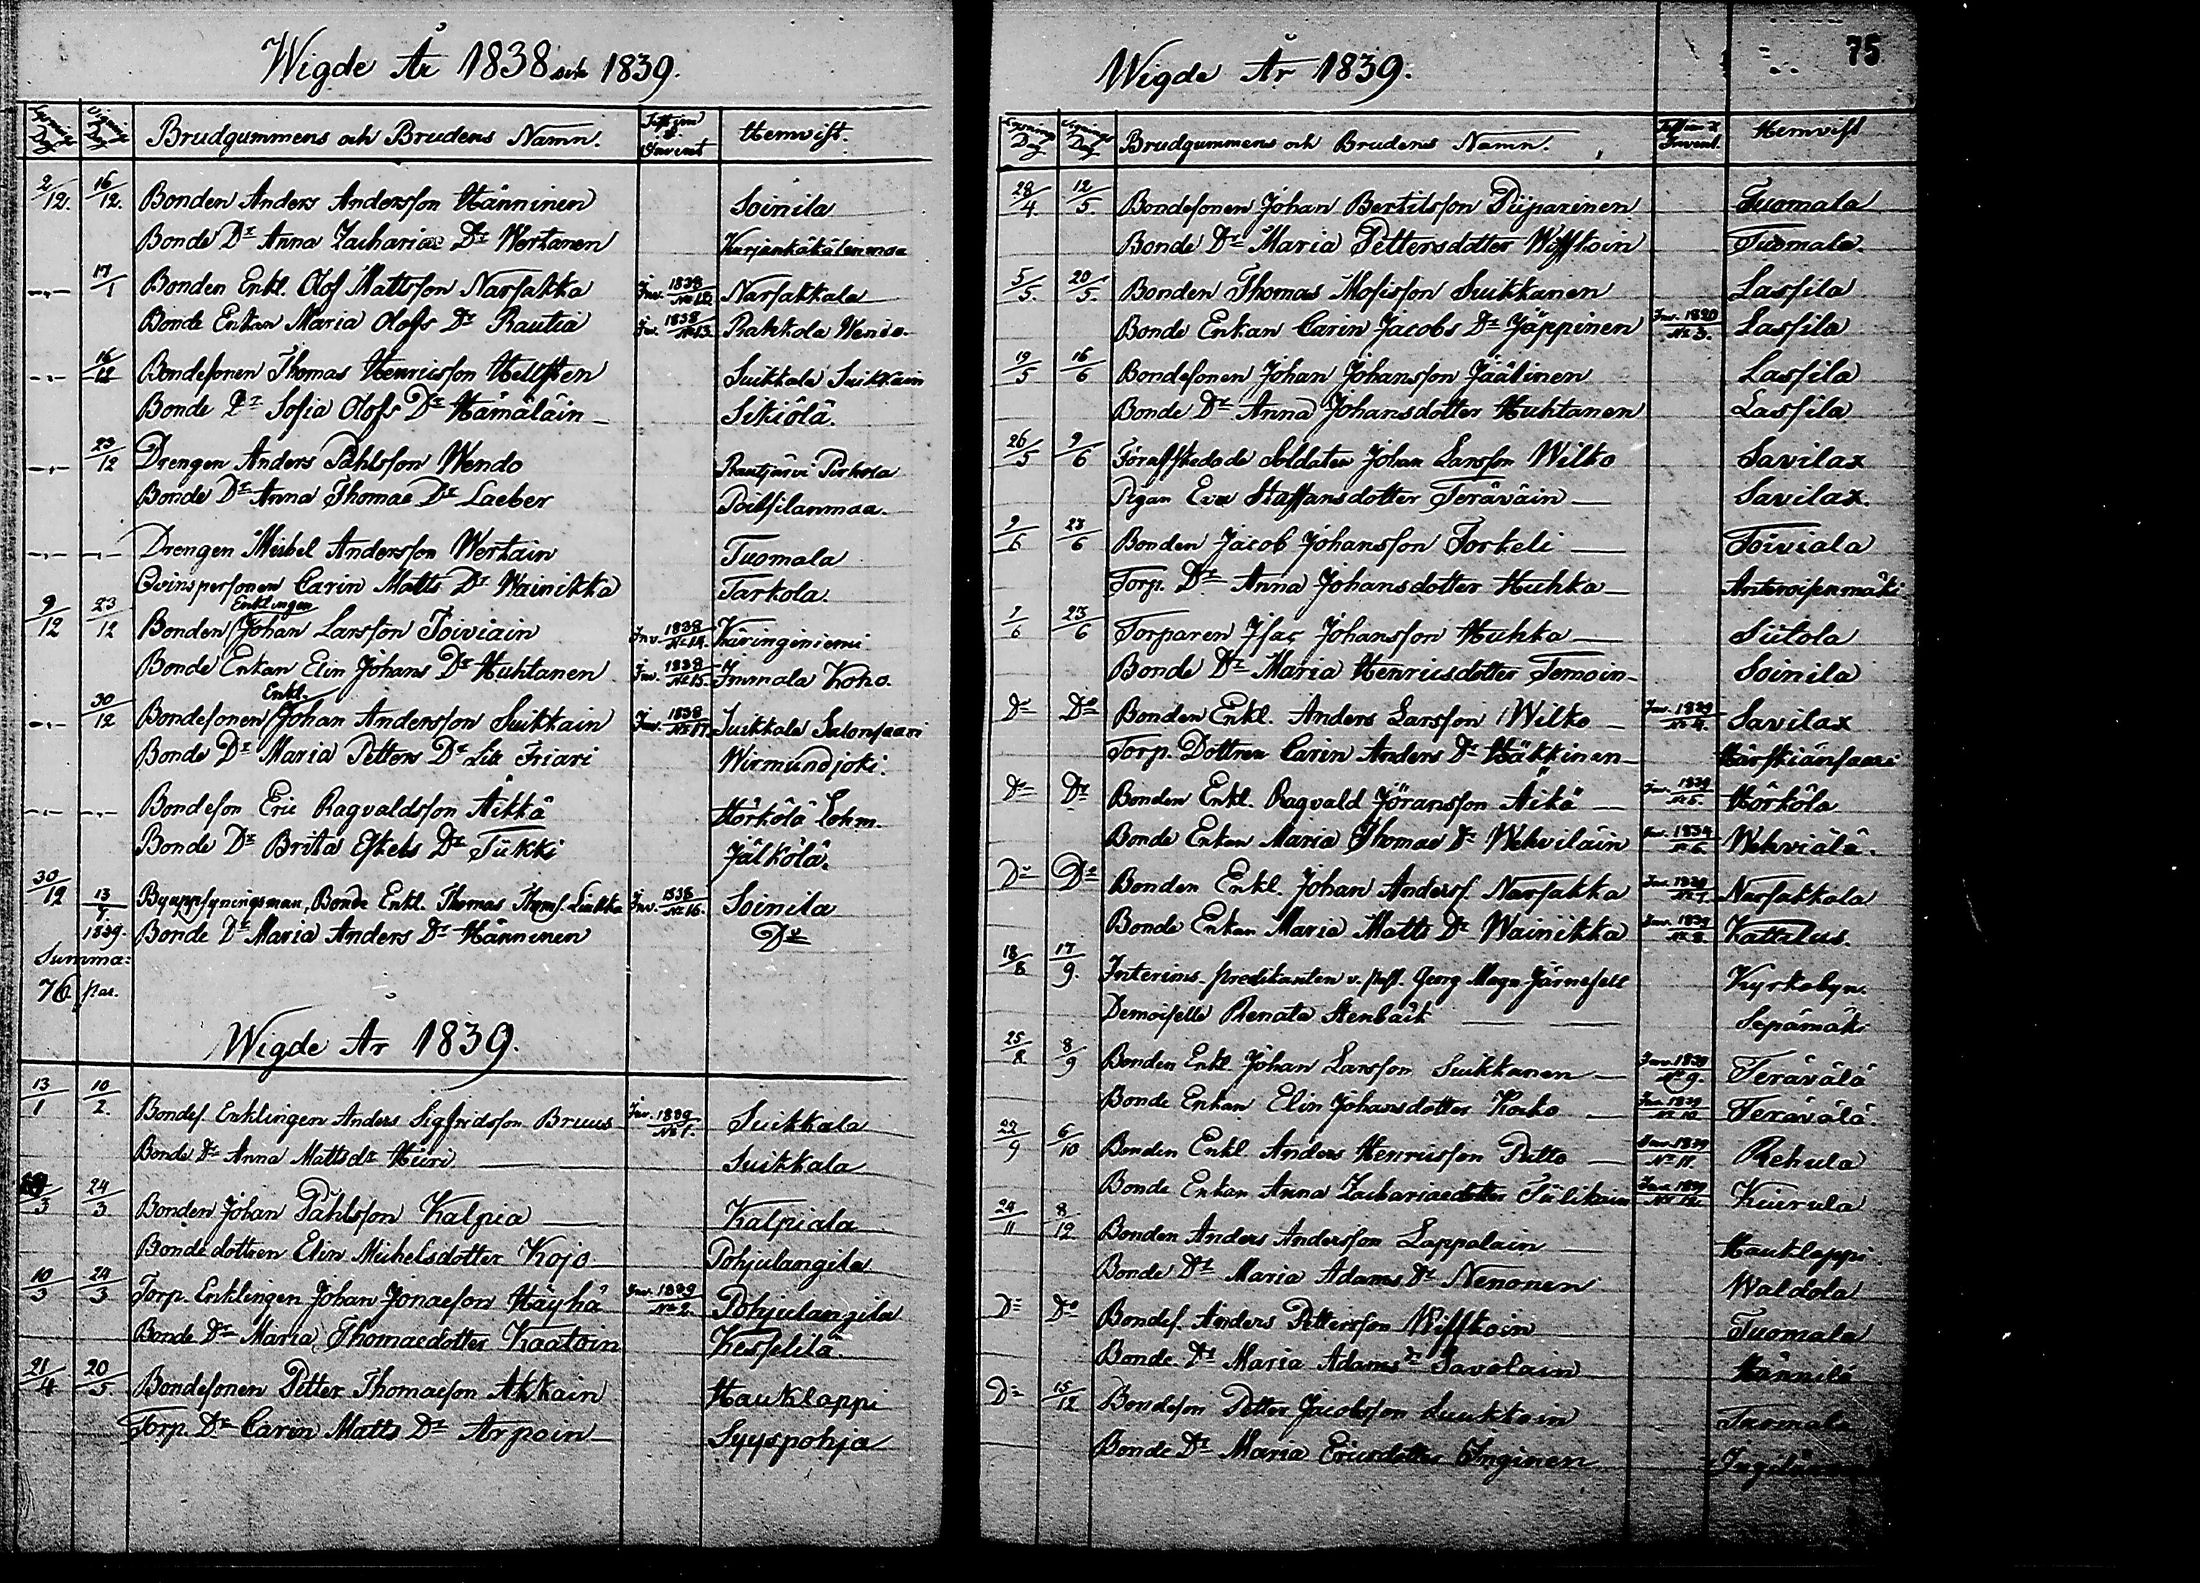 Wigde År 1838 och 1839.
Lysnings Dag Vignings Dag Brudgummens och Brudens Namn. Invent Hemvist.
2/12. 16/12. Bonden Anders Andersson Hänninen Soinila
Bonde Dr Anna Zachariae Dr Wertanen
17/1 Bonden Enkl. Olof Mattsson Narsakka Inv. 1838/No 12. Narsakkala
Bonde Enkan Maria Olofs Dr Rautia Inv. 1838/No 13. Rakkola Wendo.
-"- 16/12 Bondesonen Thomas Henricsson Hellsten Suikkala Suikkain
Bonde Dr Sofia Olofs Dr Hämäläin Sikiölä.
-"- 23/12 Drengen Anders Påhlsson Wendo Rautjärvi Purhola
Bonde Dr Anna Thomae Dr Laeber Poitsilanmaa.
-"- -"- Drengen Michel Andersson Wertain Tuomala
Qvinspersonen Carin Matts Dr Wainikka Tarkola.
9/12 23/12 Bonden Enklingen Johan Larsson Toiviain Inv. 1838/No 14. Kuringiniemi
Bonde Enkan Elin Johans Dr Huhtanen Inv. 1838/No 15. Immala Koho.
-"- 30/12 Bondesonen Enkl. Johan Andersson Suikkain Inv. 1838/No 17. Suikkala Salonsaari
Bonde Dr Maria Petters Dr Friari Wirmundjoki.
-"- -"- Bondeson Eric Ragvaldsson Äikkä Hörkölä Lohm.
Bonde Dr Brita Eskels Dr Tiikki Jälkölä.
30/12 13/1. 1839. Byuppsyningsman, Bonde Enkl. Thomas Thoms. Luikka Inv. 1838/No 16. Soinila
Bonde Dr Maria Anders Dr Hänninen Do
Summa:
76 par.
Wigde År 1839.
13/1 10/2. Bondes. Enklingen Anders Sigfridsson Bruus Inv. 1839/No 1. Suikkala
Bonde Dr Anna Matts dr Hiiri Suikkala
/3 24/3 Bonden Johan Påhlsson Kalpia Kalpiala
Bondedottren Elin Michelsdotter Kojo Pohjulangila
10/3 24/3 Torp. Enklingen Johan Jonaeson Häyhä Inv. 1839/No 2. Pohjulangila
Bonde Dr Maria Thomaedotter Kaatoin Kesselilä.
21/4 20/5 Bondesonen Petter Thomaeson Akkain Hauklappi
Torp. Dr Carin Matts Dr Arpoin Syyspohja
75
Wigde År 1839.
Lysnings Dag Vignings Dag Brudgummens och Brudens Namn. Invent. Hemvist
28/4 12/5. Bondesonen Johan Bertilsson Piiparinen Tuomala
Bonde Dr Maria Pettersdotter Tuomala.
5/5. 20/5. Bonden Thomas Mosisson Suikkanen Lassila
Bonde Enkan Carin Jacobs Dr Jäppinen No 3. Lassila
19/5 16/6 Bondesonen Johan Johansson Jäälinen Lassila
Bonde Dr Anna Johansdotter Huhtanen Lassila
26/5 9/6 Förafskedade Soldaten Johan Larsson Wilko Savilax
Pigan Eva Staffansdotter Teräväin Savilax.
9/6 23/6 Bonden Jacob Johansson Torkeli Toiviala
Torp. Dr Anna Johansdotter Huhka Anteroisenmäki
2/6 23/6 Torparen Isac Johansson Huhka Siitola
Bonde Dr Maria Henricsdotter Temoin Soinila
Do Do Bonden Enkl. Anders Larsson Wilko Inv. 1839/No 4. Savilax
Torp. Dottren Carin Anders Dr Häkkinen Härskiänsaari
Do Do Bonden Enkl. Ragvald Jöransson Äikä Inv. 1839/No 5. Hörkölä
Bonde Enkan Maria Thomae Dr Wehviläin No 6. Wehviälä.
Do Do Bonden Enkl. Johan Anderss. Narsakka Inv. 1839/No 7. Narsakkala
Bonde Enkan Maria Matts Dr Wainikka Inv. 1839/No 8. Kattelus.
18/8 17/9. Interims-predikanten v. past. Georg Magn. Järnefelt Kyrkobyn.
Demoiselle Renata Stenbäck Sepämäki
25/8 8/9 Bonden Enkl. Johan Larsson Suikkanen Inv. 1839/No 9. Terävälä
Bonde Enkan Elin Johansdotter Koko Inv. 1839/No 10. Terävälä.
22/9 6/10 Bonden Enkl. Anders Henricsson Putto Inv. 1839/No 11. Rehula
Bonde Enkan Anna Zachariaedotter Tiilikain Inv. 1839/No 12. Kiurula
24/11 8/12 Bonden Anders Andersson Lappalain Hauklappi
Bonde Dr Maria Adams Dr Nenonen Waldola
Do Do Bondes. Anders Pettersson Tuomala
Bonde Dr Maria Adams Dr Savolain Hännilä
Do 15/12 Bondeson Petter Jacobsson Luukkoin Tuomala
Bonde Dr Maria Ericsdotter Inginen